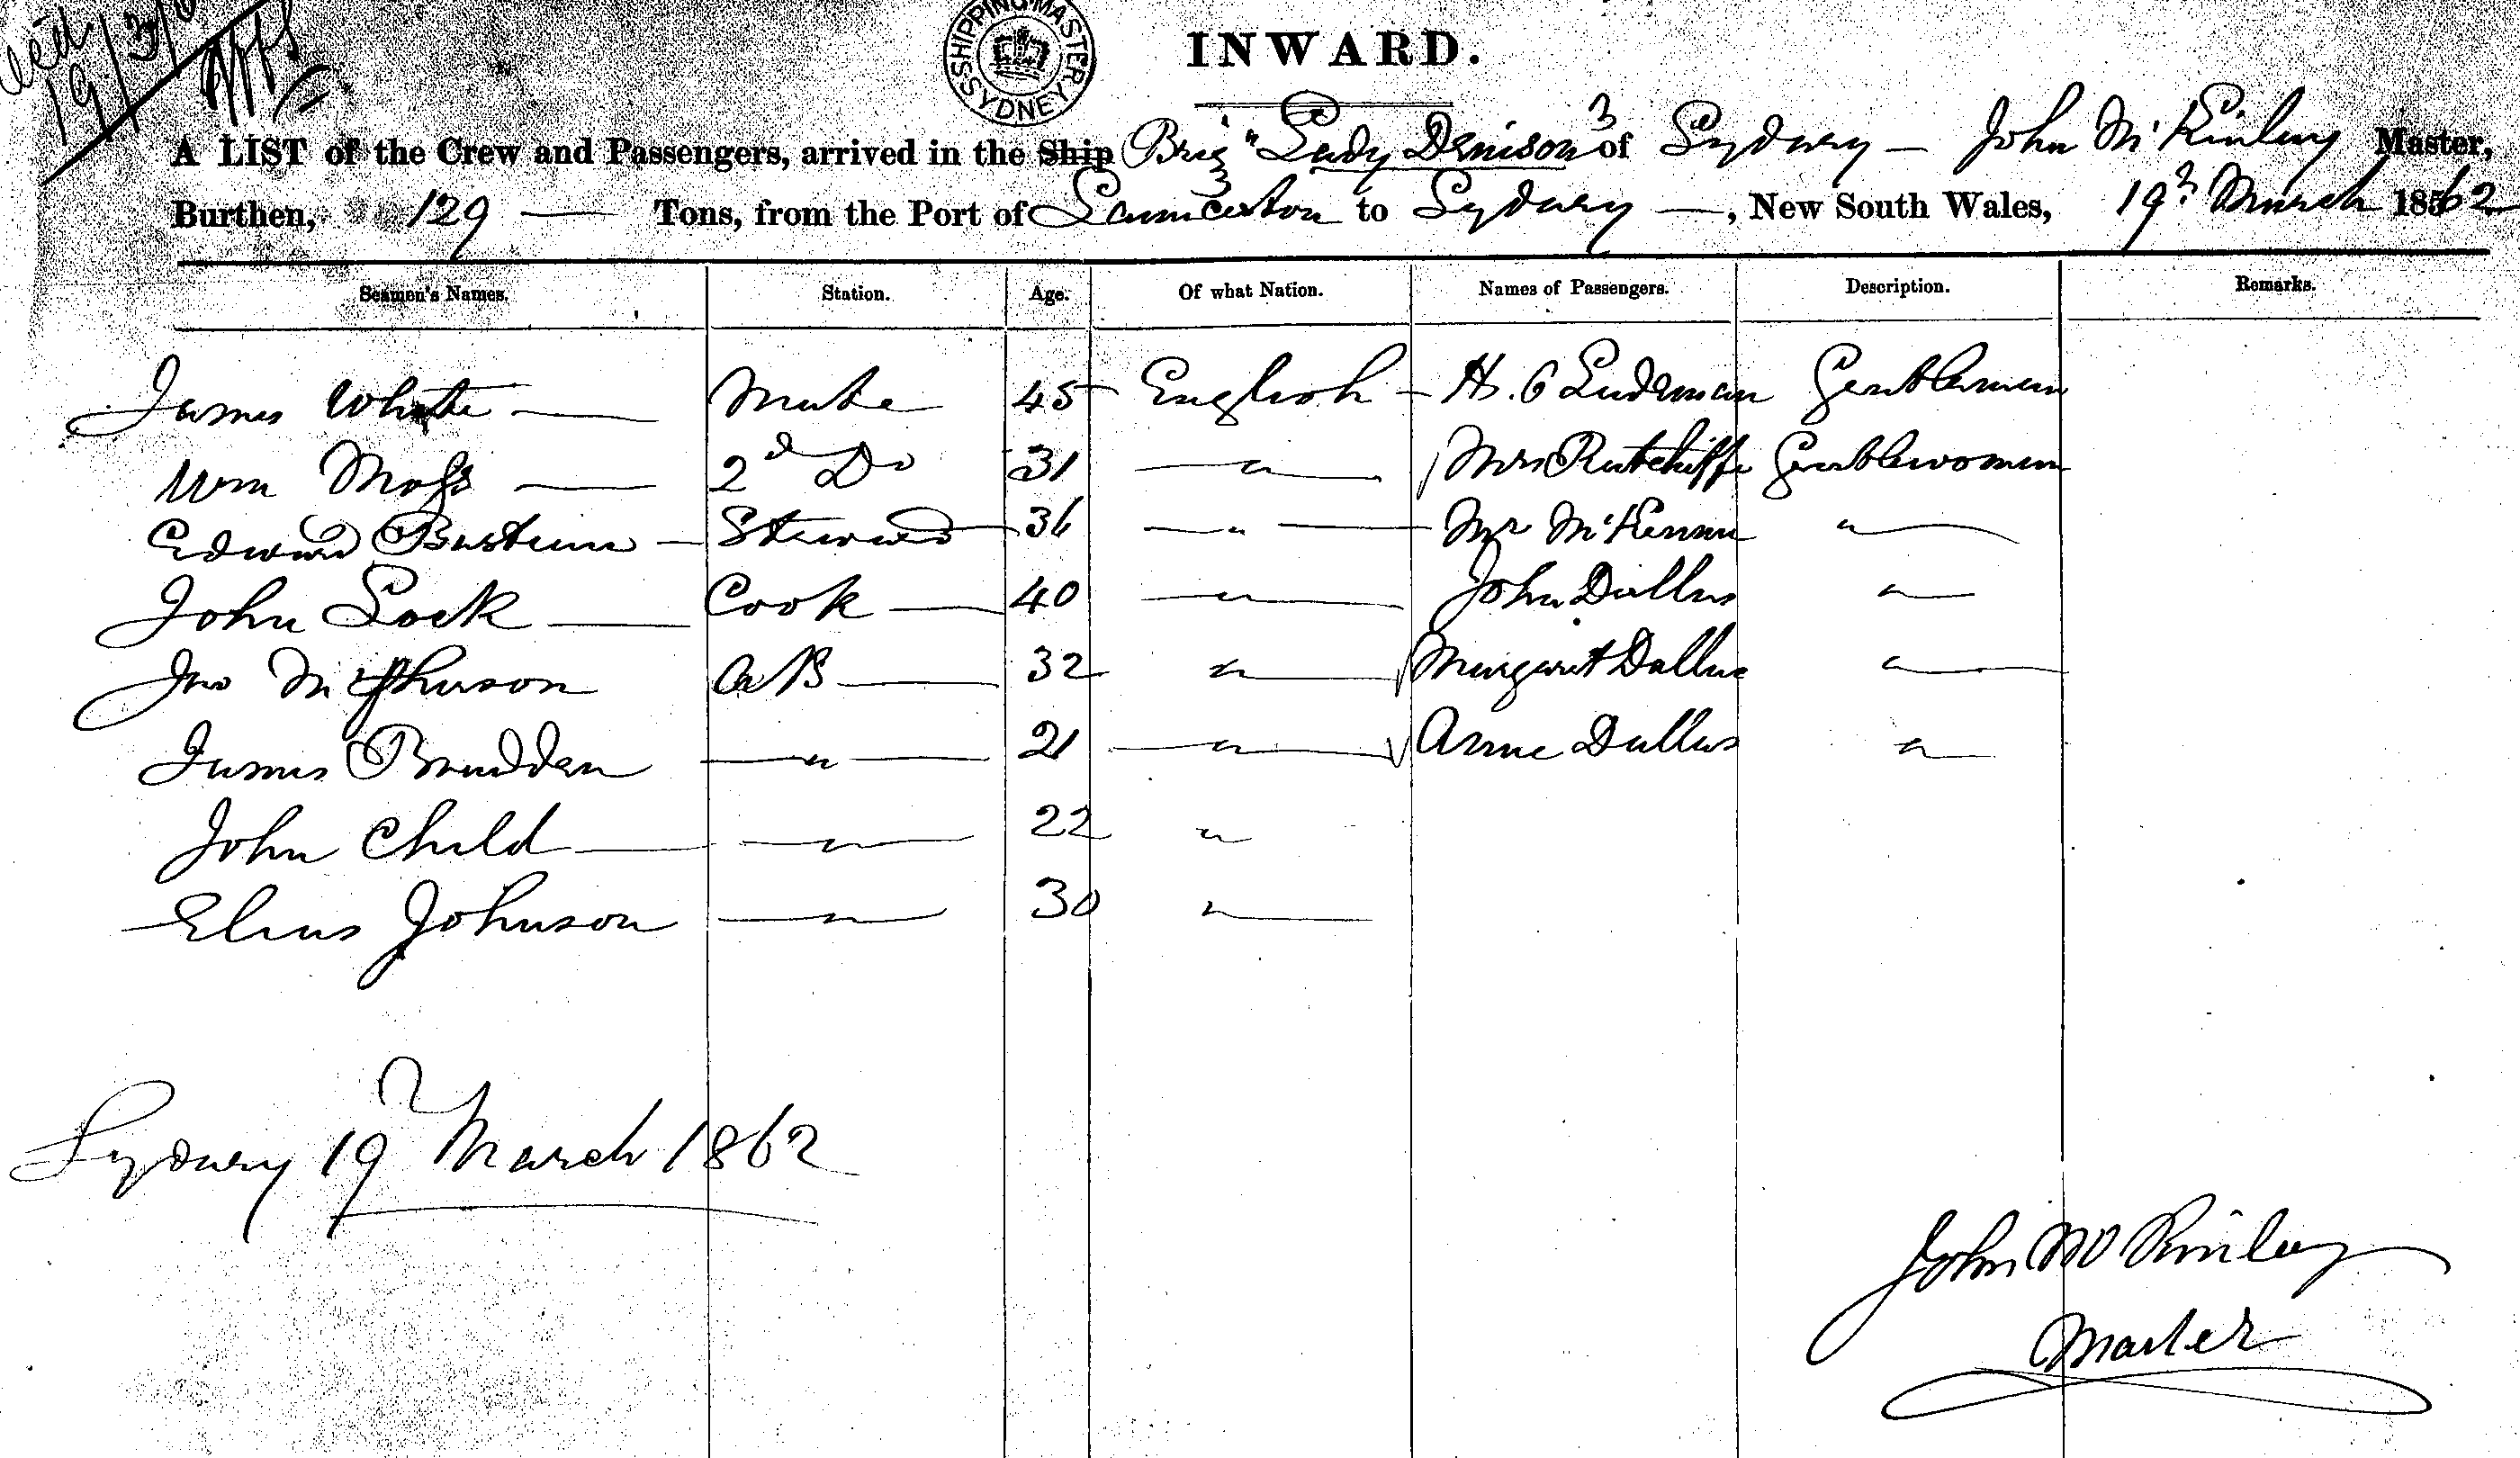 INWARD.
SHIPPING MASTER SYDNEY
19/3/
A LIST of the Crew and Passengers, arrived in the Ship Brig "Lady Denison" of Sydney — John McKinley Master,
Burthen, 129 — Tons, from the Port of Launceston to Sydney —, New South Wales, 19th March 1862
Seamen's Names. Station. Age. Of what Nation. Names of Passengers. Description. Remarks.
James White — Mate 45 English — H. C Ludeman Gentleman
Wm Moss — 2d Do 31 — " — Mrs Ratcliffe Gentlewoman
Edward — Steward 36 — " — Mr McKenna "
John Lock — Cook — 40 — " — John Dallas "
Jno McPherson AB — 32 " — Margaret Dallas "
James — " — 21 — " — Anne Dallas "
John Child — — " — 22 "
Elias Johnson — " — 30 "
Sydney 19 March 1862
John McKinley
Master